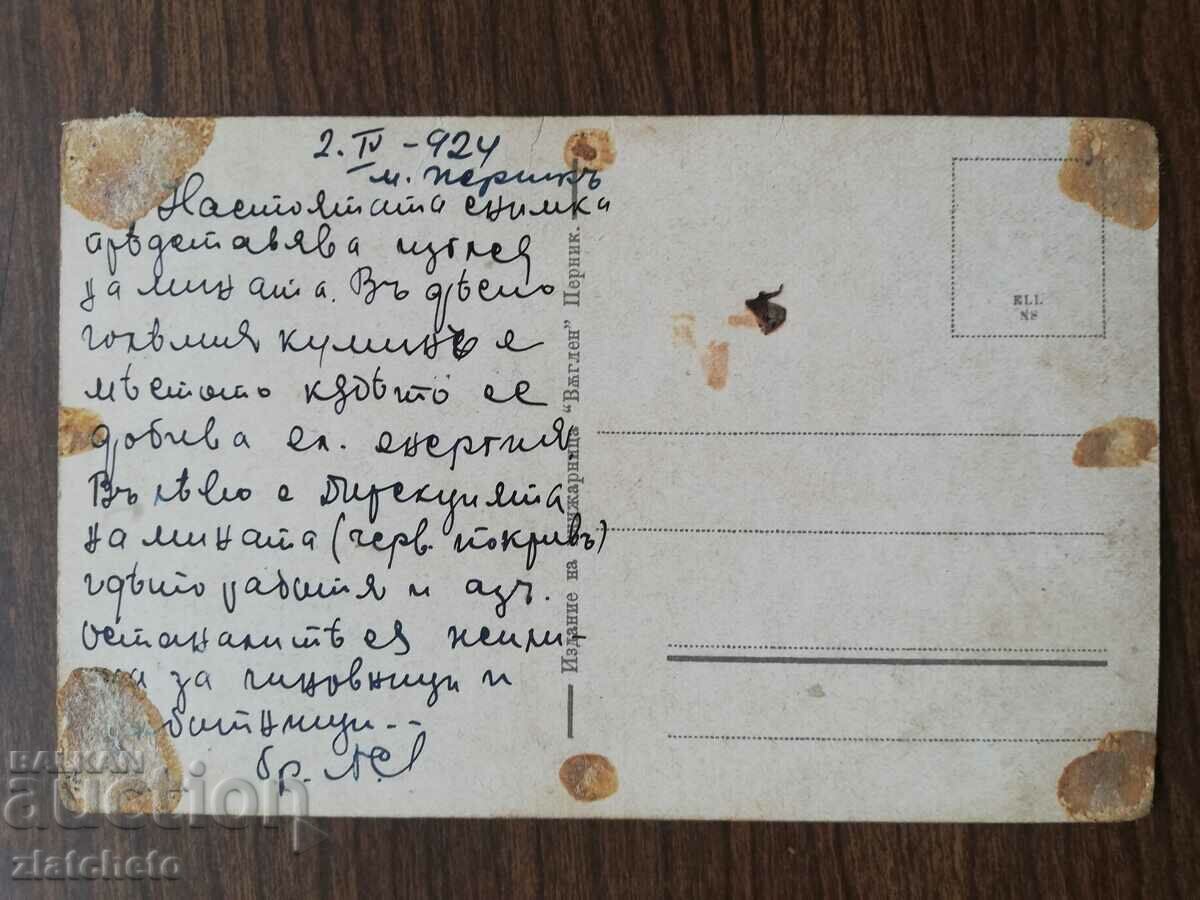 2. IV - 924
м. Перникъ
Настоятата снимка
прѣдставява изглед
на мината. Въ дѣсно
големия куминъ е
мѣстото кѫдѣто се
добива ел. енергия
Въ лѣво е Дирекцията
на мината (черв. покривъ)
гдѣто работя и азъ.
Останалитѣ са жили
за чиновници и
бр.
Издание на книжарница "Вѫглен" Перник.
ELL
NS
BALKAN
auction
zlatcheto